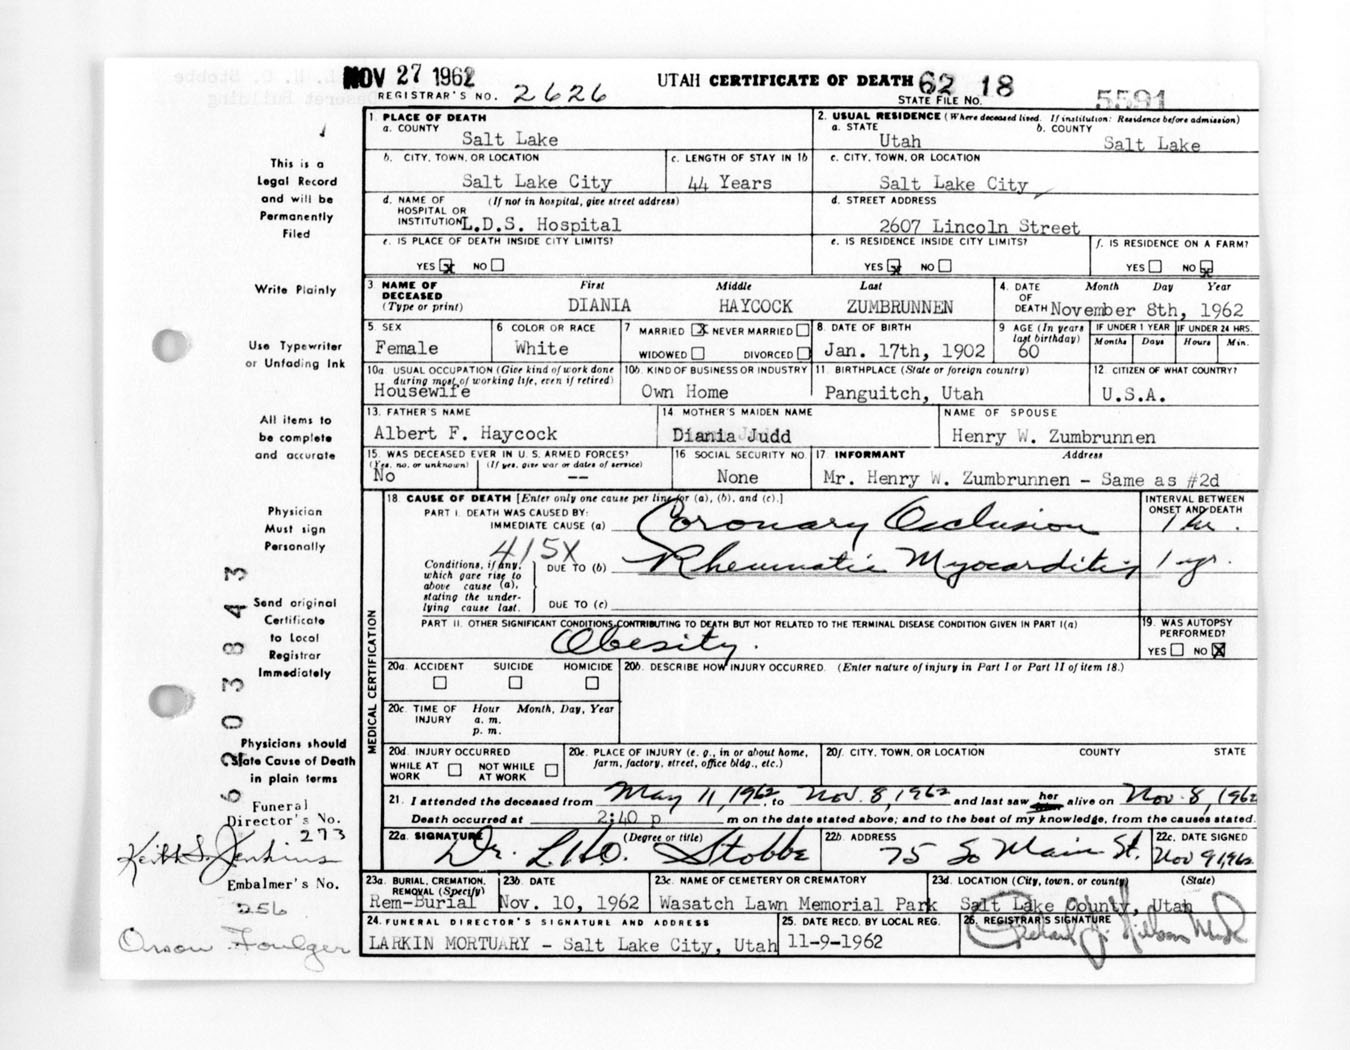 NOV 27 1962
UTAH CERTIFICATE OF DEATH 62 18
REGISTRAR'S NO. 2626
STATE FILE NO. 5591
This is a
Legal Record
and will be
Permanently
Filed
Write Plainly
Use Typewriter
or Unfading Ink
All items to
be complete
and accurate
Physician
Must sign
Personally
Send original
Certificate
to Local
Registrar
Immediately
Physicians should
State Cause of Death
in plain terms
Funeral
Director's No.
273
Keith S. Jenkins
Embalmer's No.
256
Orson Foulger
62038843
1. PLACE OF DEATH
a. COUNTY
Salt Lake
2. USUAL RESIDENCE (Where deceased lived. If institution: Residence before admission)
a. STATE b. COUNTY
Utah Salt Lake
b. CITY, TOWN, OR LOCATION c. LENGTH OF STAY IN 1b
Salt Lake City 44 Years
c. CITY, TOWN, OR LOCATION
Salt Lake City
d. NAME OF HOSPITAL OR INSTITUTION (If not in hospital, give street address)
L.D.S. Hospital
d. STREET ADDRESS
2607 Lincoln Street
e. IS PLACE OF DEATH INSIDE CITY LIMITS?
YES X NO
e. IS RESIDENCE INSIDE CITY LIMITS? f. IS RESIDENCE ON A FARM?
YES X NO YES NO X
3 NAME OF DECEASED (Type or print) First Middle Last
DIANIA HAYCOCK ZUMBRUNNEN
4. DATE OF DEATH Month Day Year
November 8th, 1962
5. SEX 6. COLOR OR RACE 7 MARRIED X NEVER MARRIED WIDOWED DIVORCED 8. DATE OF BIRTH 9 AGE (In years last birthday) IF UNDER 1 YEAR IF UNDER 24 HRS. Months Days Hours Min.
Female White Jan. 17th, 1902 60
10a USUAL OCCUPATION (Give kind of work done during most of working life, even if retired) 10b. KIND OF BUSINESS OR INDUSTRY 11. BIRTHPLACE (State or foreign country) 12. CITIZEN OF WHAT COUNTRY?
Housewife Own Home Panguitch, Utah U.S.A.
13. FATHER'S NAME 14 MOTHER'S MAIDEN NAME NAME OF SPOUSE
Albert F. Haycock Diania Judd Henry W. Zumbrunnen
15. WAS DECEASED EVER IN U. S. ARMED FORCES? 16 SOCIAL SECURITY NO. 17. INFORMANT Address
(Yes, no, or unknown) (If yes, give war or dates of service)
No -- None Mr. Henry W. Zumbrunnen - Same as #2d
MEDICAL CERTIFICATION
18. CAUSE OF DEATH [Enter only one cause per line for (a), (b), and (c).] INTERVAL BETWEEN ONSET AND DEATH
PART I. DEATH WAS CAUSED BY:
IMMEDIATE CAUSE (a) Coronary Occlusion 1 hr.
415X
Conditions, if any, which gave rise to above cause (a), stating the underlying cause last.
DUE TO (b) Rheumatic Myocarditis 1 yr.
DUE TO (c)
PART II. OTHER SIGNIFICANT CONDITIONS CONTRIBUTING TO DEATH BUT NOT RELATED TO THE TERMINAL DISEASE CONDITION GIVEN IN PART I(a)
Obesity.
19. WAS AUTOPSY PERFORMED?
YES NO X
20a. ACCIDENT SUICIDE HOMICIDE 20b. DESCRIBE HOW INJURY OCCURRED. (Enter nature of injury in Part I or Part II of item 18.)
20c. TIME OF INJURY Hour Month, Day, Year
a. m.
p. m.
20d. INJURY OCCURRED
WHILE AT WORK NOT WHILE AT WORK
20e. PLACE OF INJURY (e. g., in or about home, farm, factory, street, office bldg., etc.)
20f. CITY, TOWN, OR LOCATION COUNTY STATE
21. I attended the deceased from May 11, 1962, to Nov. 8, 1962 and last saw her alive on Nov. 8, 1962
Death occurred at 2:40 p m on the date stated above; and to the best of my knowledge, from the causes stated.
22a. SIGNATURE (Degree or title) 22b. ADDRESS 22c. DATE SIGNED
Dr. L.H.O. Stobbe 75 So Main St. Nov 9, 1962
23a. BURIAL, CREMATION, REMOVAL (Specify) 23b. DATE 23c. NAME OF CEMETERY OR CREMATORY 23d. LOCATION (City, town, or county) (State)
Rem-Burial Nov. 10, 1962 Wasatch Lawn Memorial Park Salt Lake County, Utah
24. FUNERAL DIRECTOR'S SIGNATURE AND ADDRESS 25. DATE RECD. BY LOCAL REG. 26. REGISTRAR'S SIGNATURE
LARKIN MORTUARY - Salt Lake City, Utah 11-9-1962